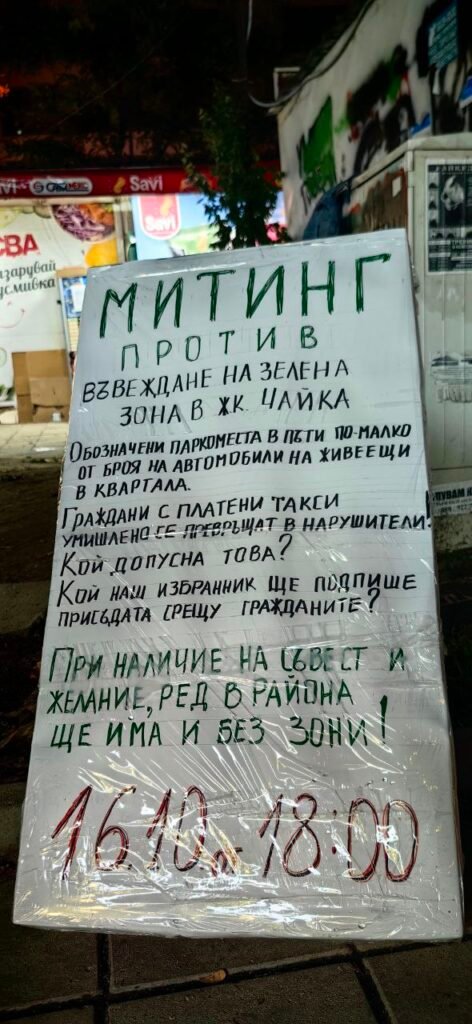 Savi
СВА
пазарувай
усмивка
МИТИНГ
ПРОТИВ
ВЪВЕЖДАНЕ НА ЗЕЛЕНА
ЗОНА В ЖК. ЧАЙКА
ОБОЗНАЧЕНИ ПАРКОМЕСТА В ПЪТИ ПО-МАЛКО
ОТ БРОЯ НА АВТОМОБИЛИ НА ЖИВЕЕЩИ
В КВАРТАЛА.
ГРАЖДАНИ С ПЛАТЕНИ ТАКСИ
УМИШЛЕНО СЕ ПРЕВРЪЩАТ В НАРУШИТЕЛИ!
КОЙ ДОПУСНА ТОВА?
КОЙ НАШ ИЗБРАННИК ЩЕ ПОДПИШЕ
ПРИСЪДАТА СРЕЩУ ГРАЖДАНИТЕ?
ПРИ НАЛИЧИЕ НА СЪВЕСТ И
ЖЕЛАНИЕ, РЕД В РАЙОНА
ЩЕ ИМА И БЕЗ ЗОНИ!
16.10.от 18:00